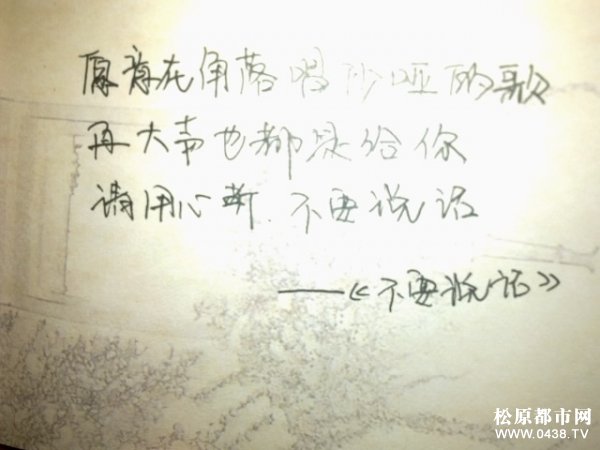 愿意在角落唱沙哑的歌
再大声也都是给你
请用心听 不要说话
——《不要说话》
松原都市网
WWW.0438.TV